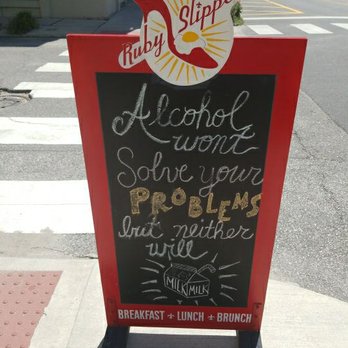 Ruby Slipper
Alcohol
wont
Solve your
PROBLEMS
but neither
will
MILK MILK
BREAKFAST + LUNCH + BRUNCH